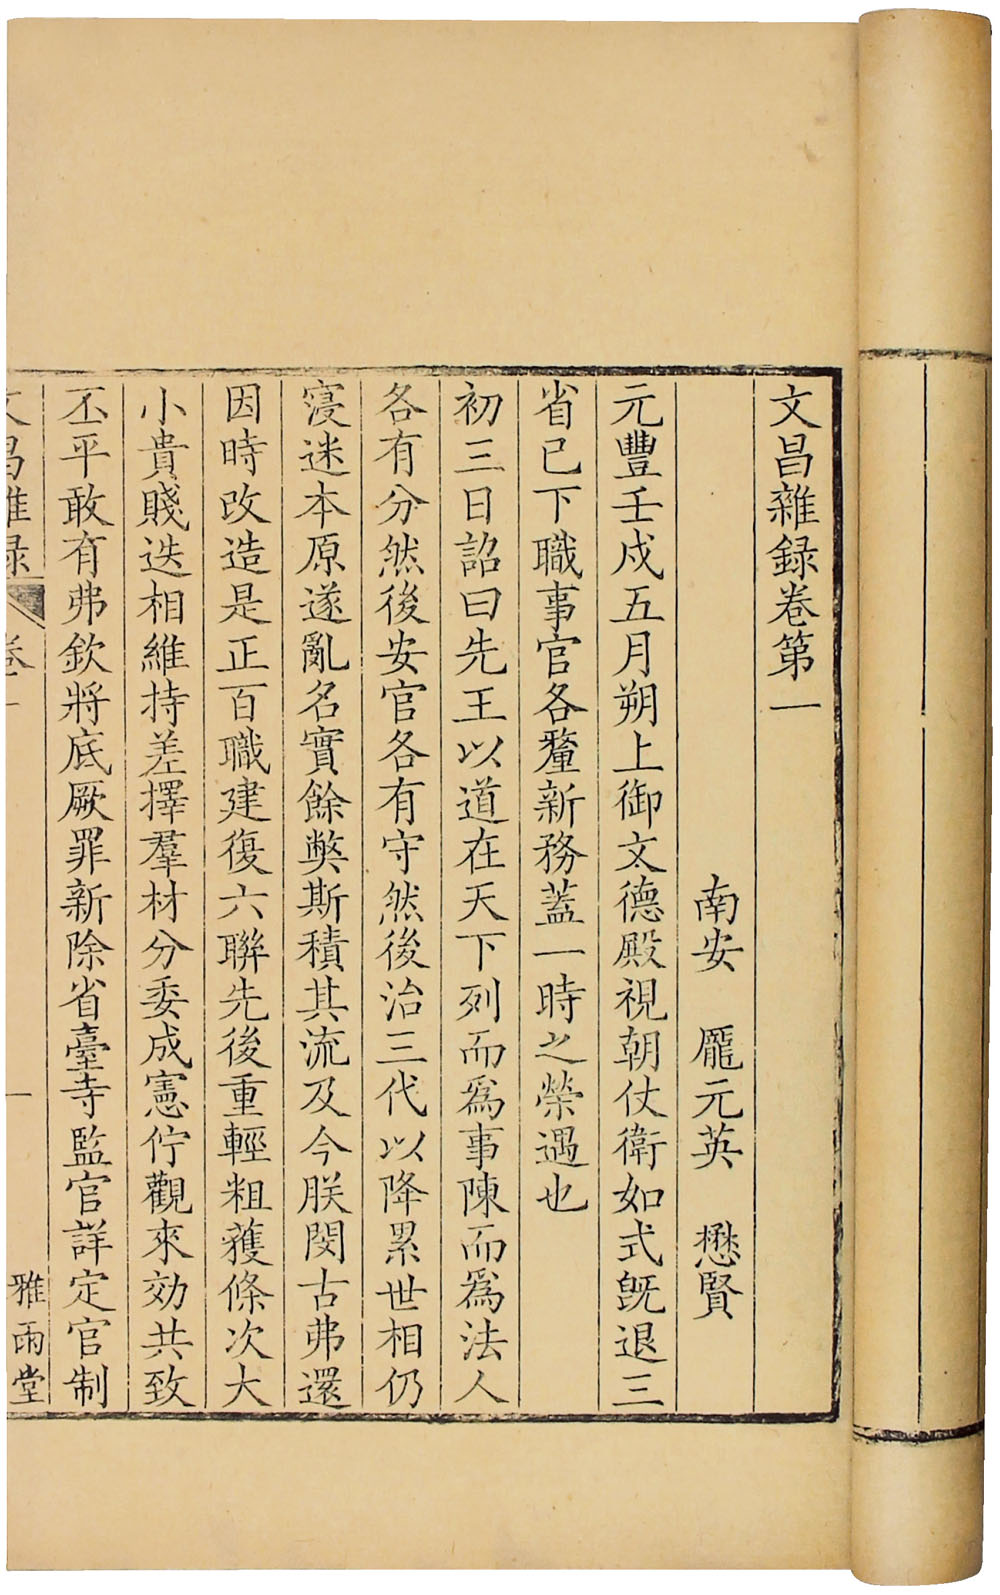 文昌雜録卷第一
南安 龎元英 懋賢
元豐壬戌五月朔上御文德殿視朝仗衛如式旣退三
省已下職事官各釐新務蓋一時之榮遇也
初三日詔曰先王以道在天下列而爲事陳而爲法人
各有分然後安官各有守然後治三代以降累世相仍
寖迷本原遂亂名實餘獘斯積其流及今朕閔古弗還
因時改造是正百職建復六聯先後重輕粗獲條次大
小貴賤迭相維持差擇羣材分委成憲佇觀來効共致
丕平敢有弗欽將底厥罪新除省臺寺監官詳定官制
文昌雜録 卷一 一 雅雨堂